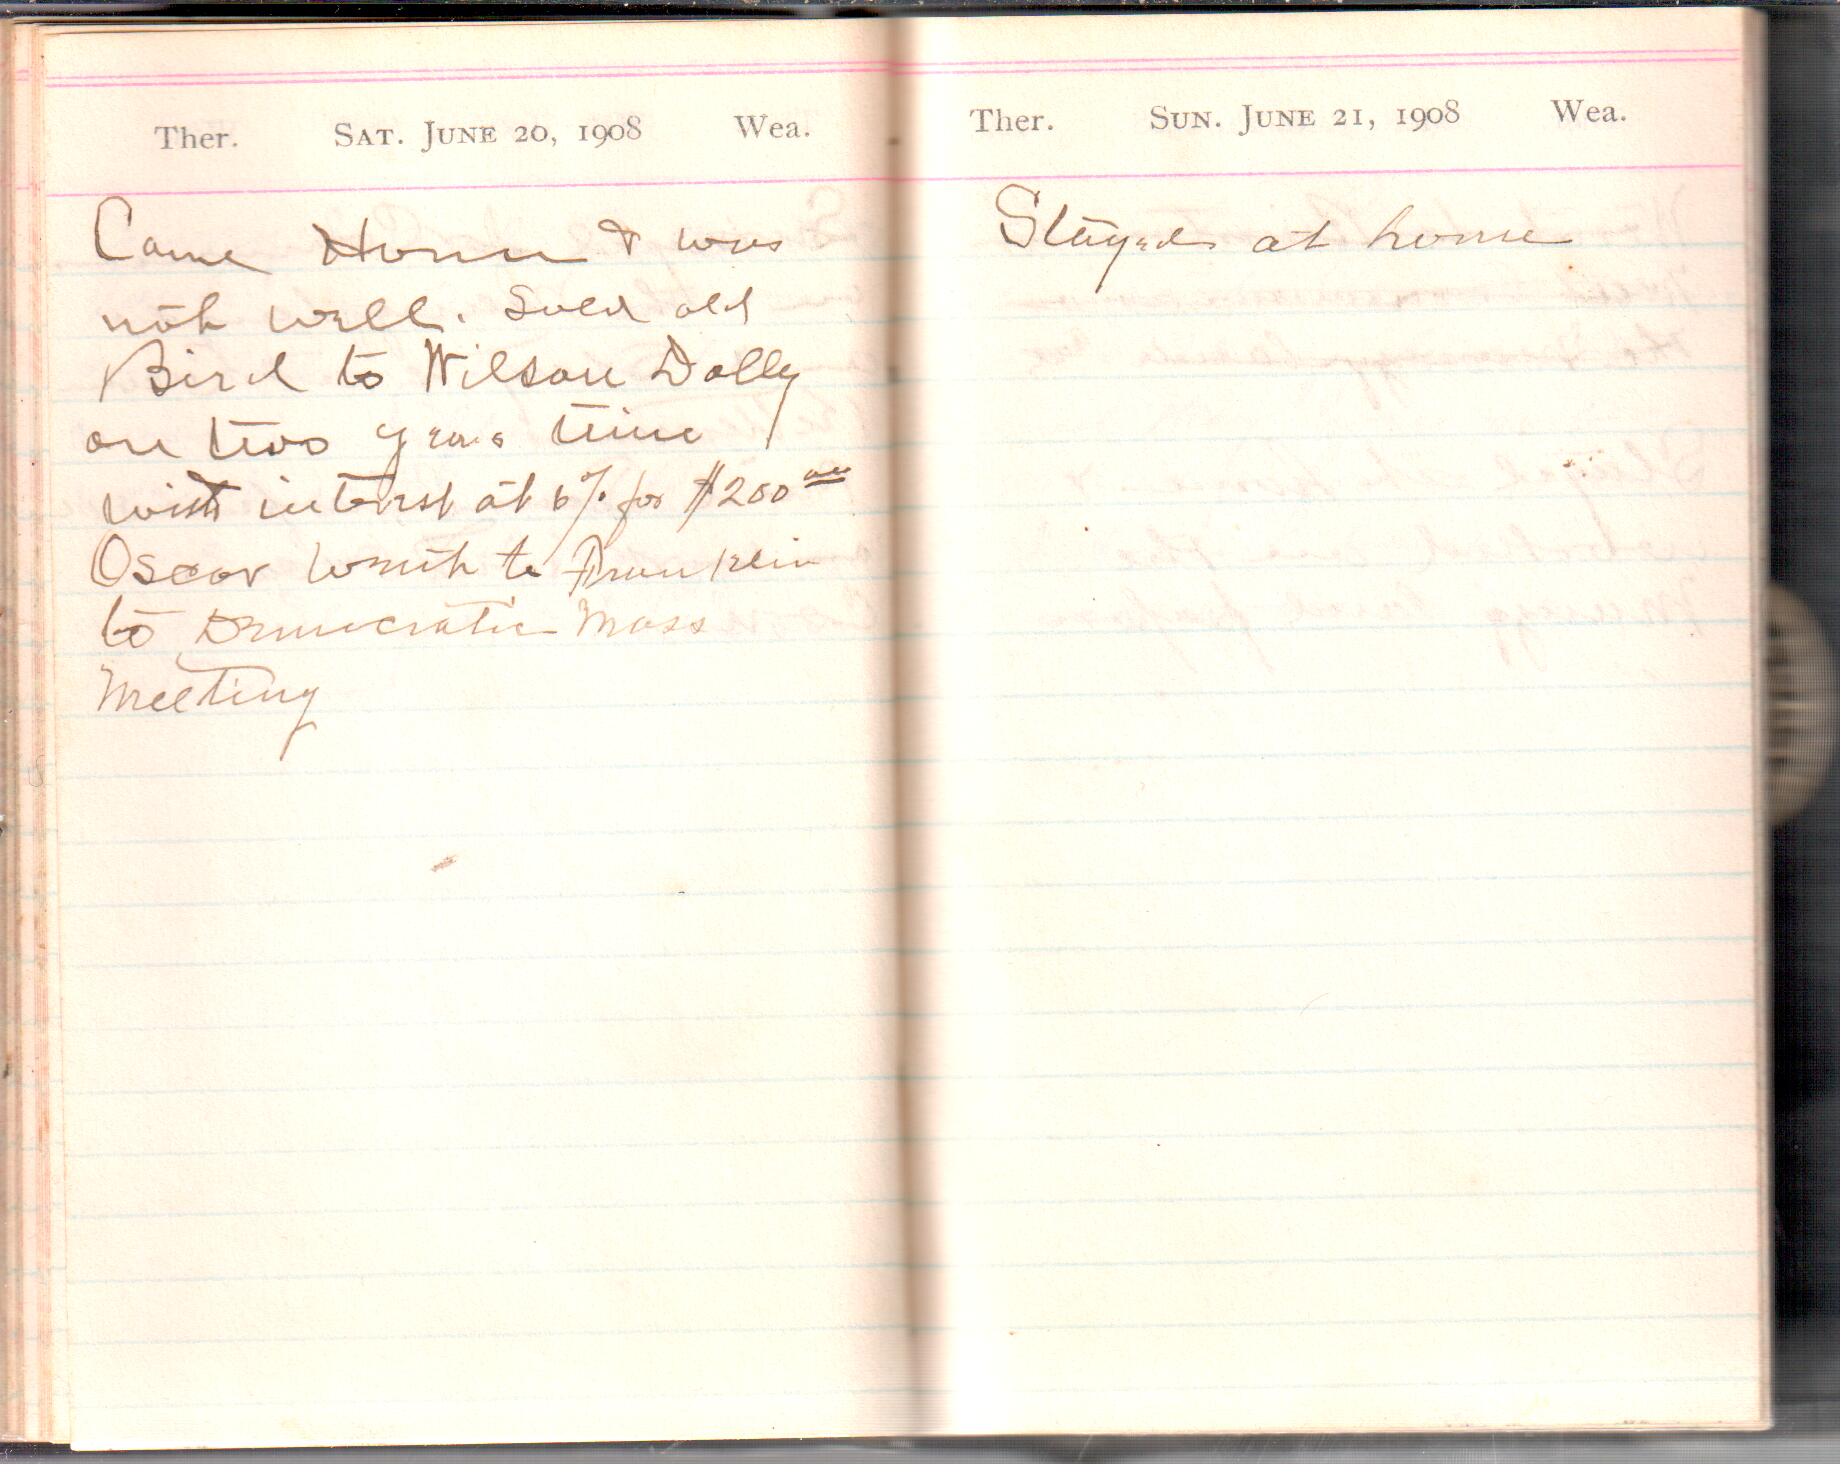 Ther. SAT. JUNE 20, 1908 Wea.
Came Home & was
not well. Sold old
Bird to Wilson Dolly
on two years time
with interest at 6% for $200 00
Oscar went to Franklin
to Democratic Mass
Meeting
Ther. SUN. JUNE 21, 1908 Wea.
Stayed at home